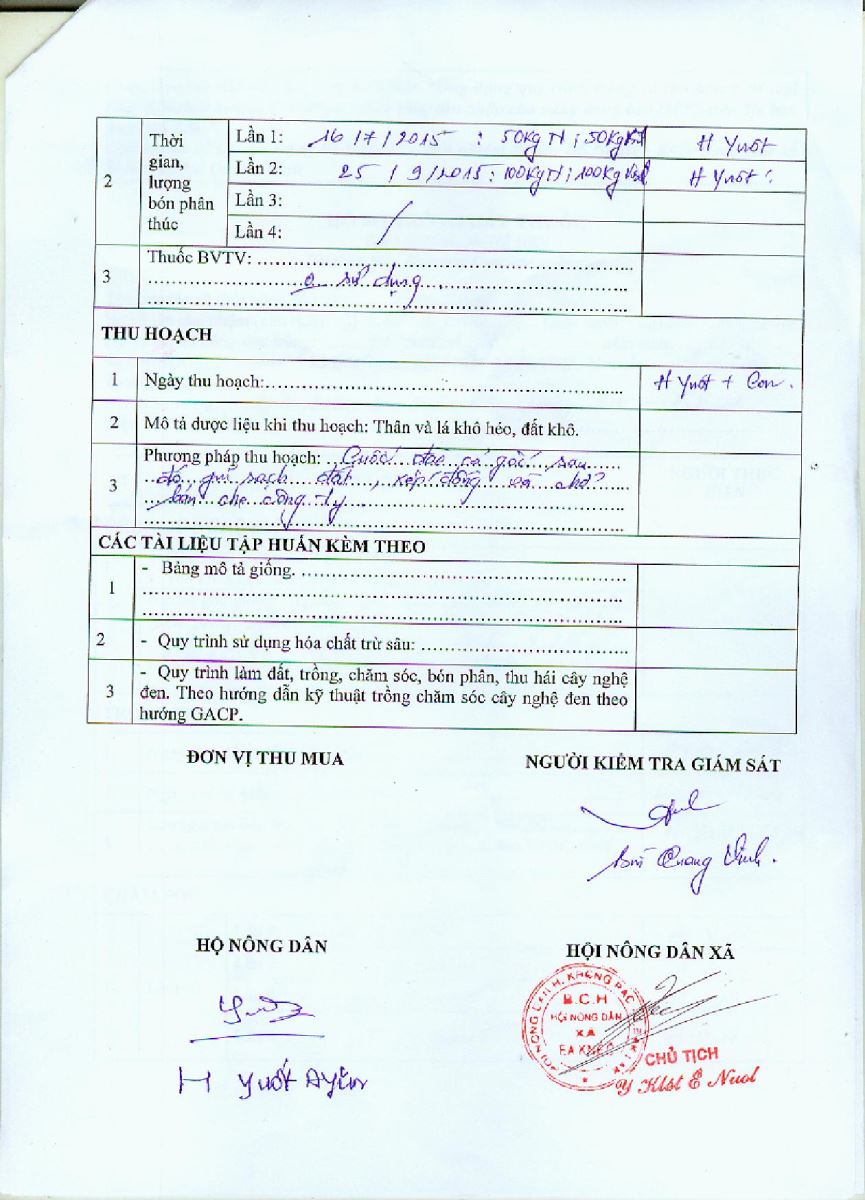 2 Thời gian, lượng bón phân thúc
Lần 1: 16/7/2015 : 50kg ; 50kg H Yuốt
Lần 2: 25/9/2015 : 100kg ; 100kg H Yuốt
Lần 3:
Lần 4:
3 Thuốc BVTV: ................
o sử dụng
THU HOẠCH
1 Ngày thu hoạch:................ H Yuốt + Con.
2 Mô tả dược liệu khi thu hoạch: Thân và lá khô héo, đất khô.
3 Phương pháp thu hoạch: Cuốc đào cả gốc, sau
đó giũ sạch đất, xếp đống và chở
bán cho công ty
CÁC TÀI LIỆU TẬP HUẤN KÈM THEO
1 - Bảng mô tả giống. ................
2 - Quy trình sử dụng hóa chất trừ sâu: ................
3 - Quy trình làm đất, trồng, chăm sóc, bón phân, thu hái cây nghệ
đen. Theo hướng dẫn kỹ thuật trồng chăm sóc cây nghệ đen theo
hướng GACP.
ĐƠN VỊ THU MUA NGƯỜI KIỂM TRA GIÁM SÁT
Bùi Quang Vinh.
HỘ NÔNG DÂN HỘI NÔNG DÂN XÃ
B.C.H
HỘI NÔNG DÂN
XÃ
CHỦ TỊCH
H Yuốt Ayŭn